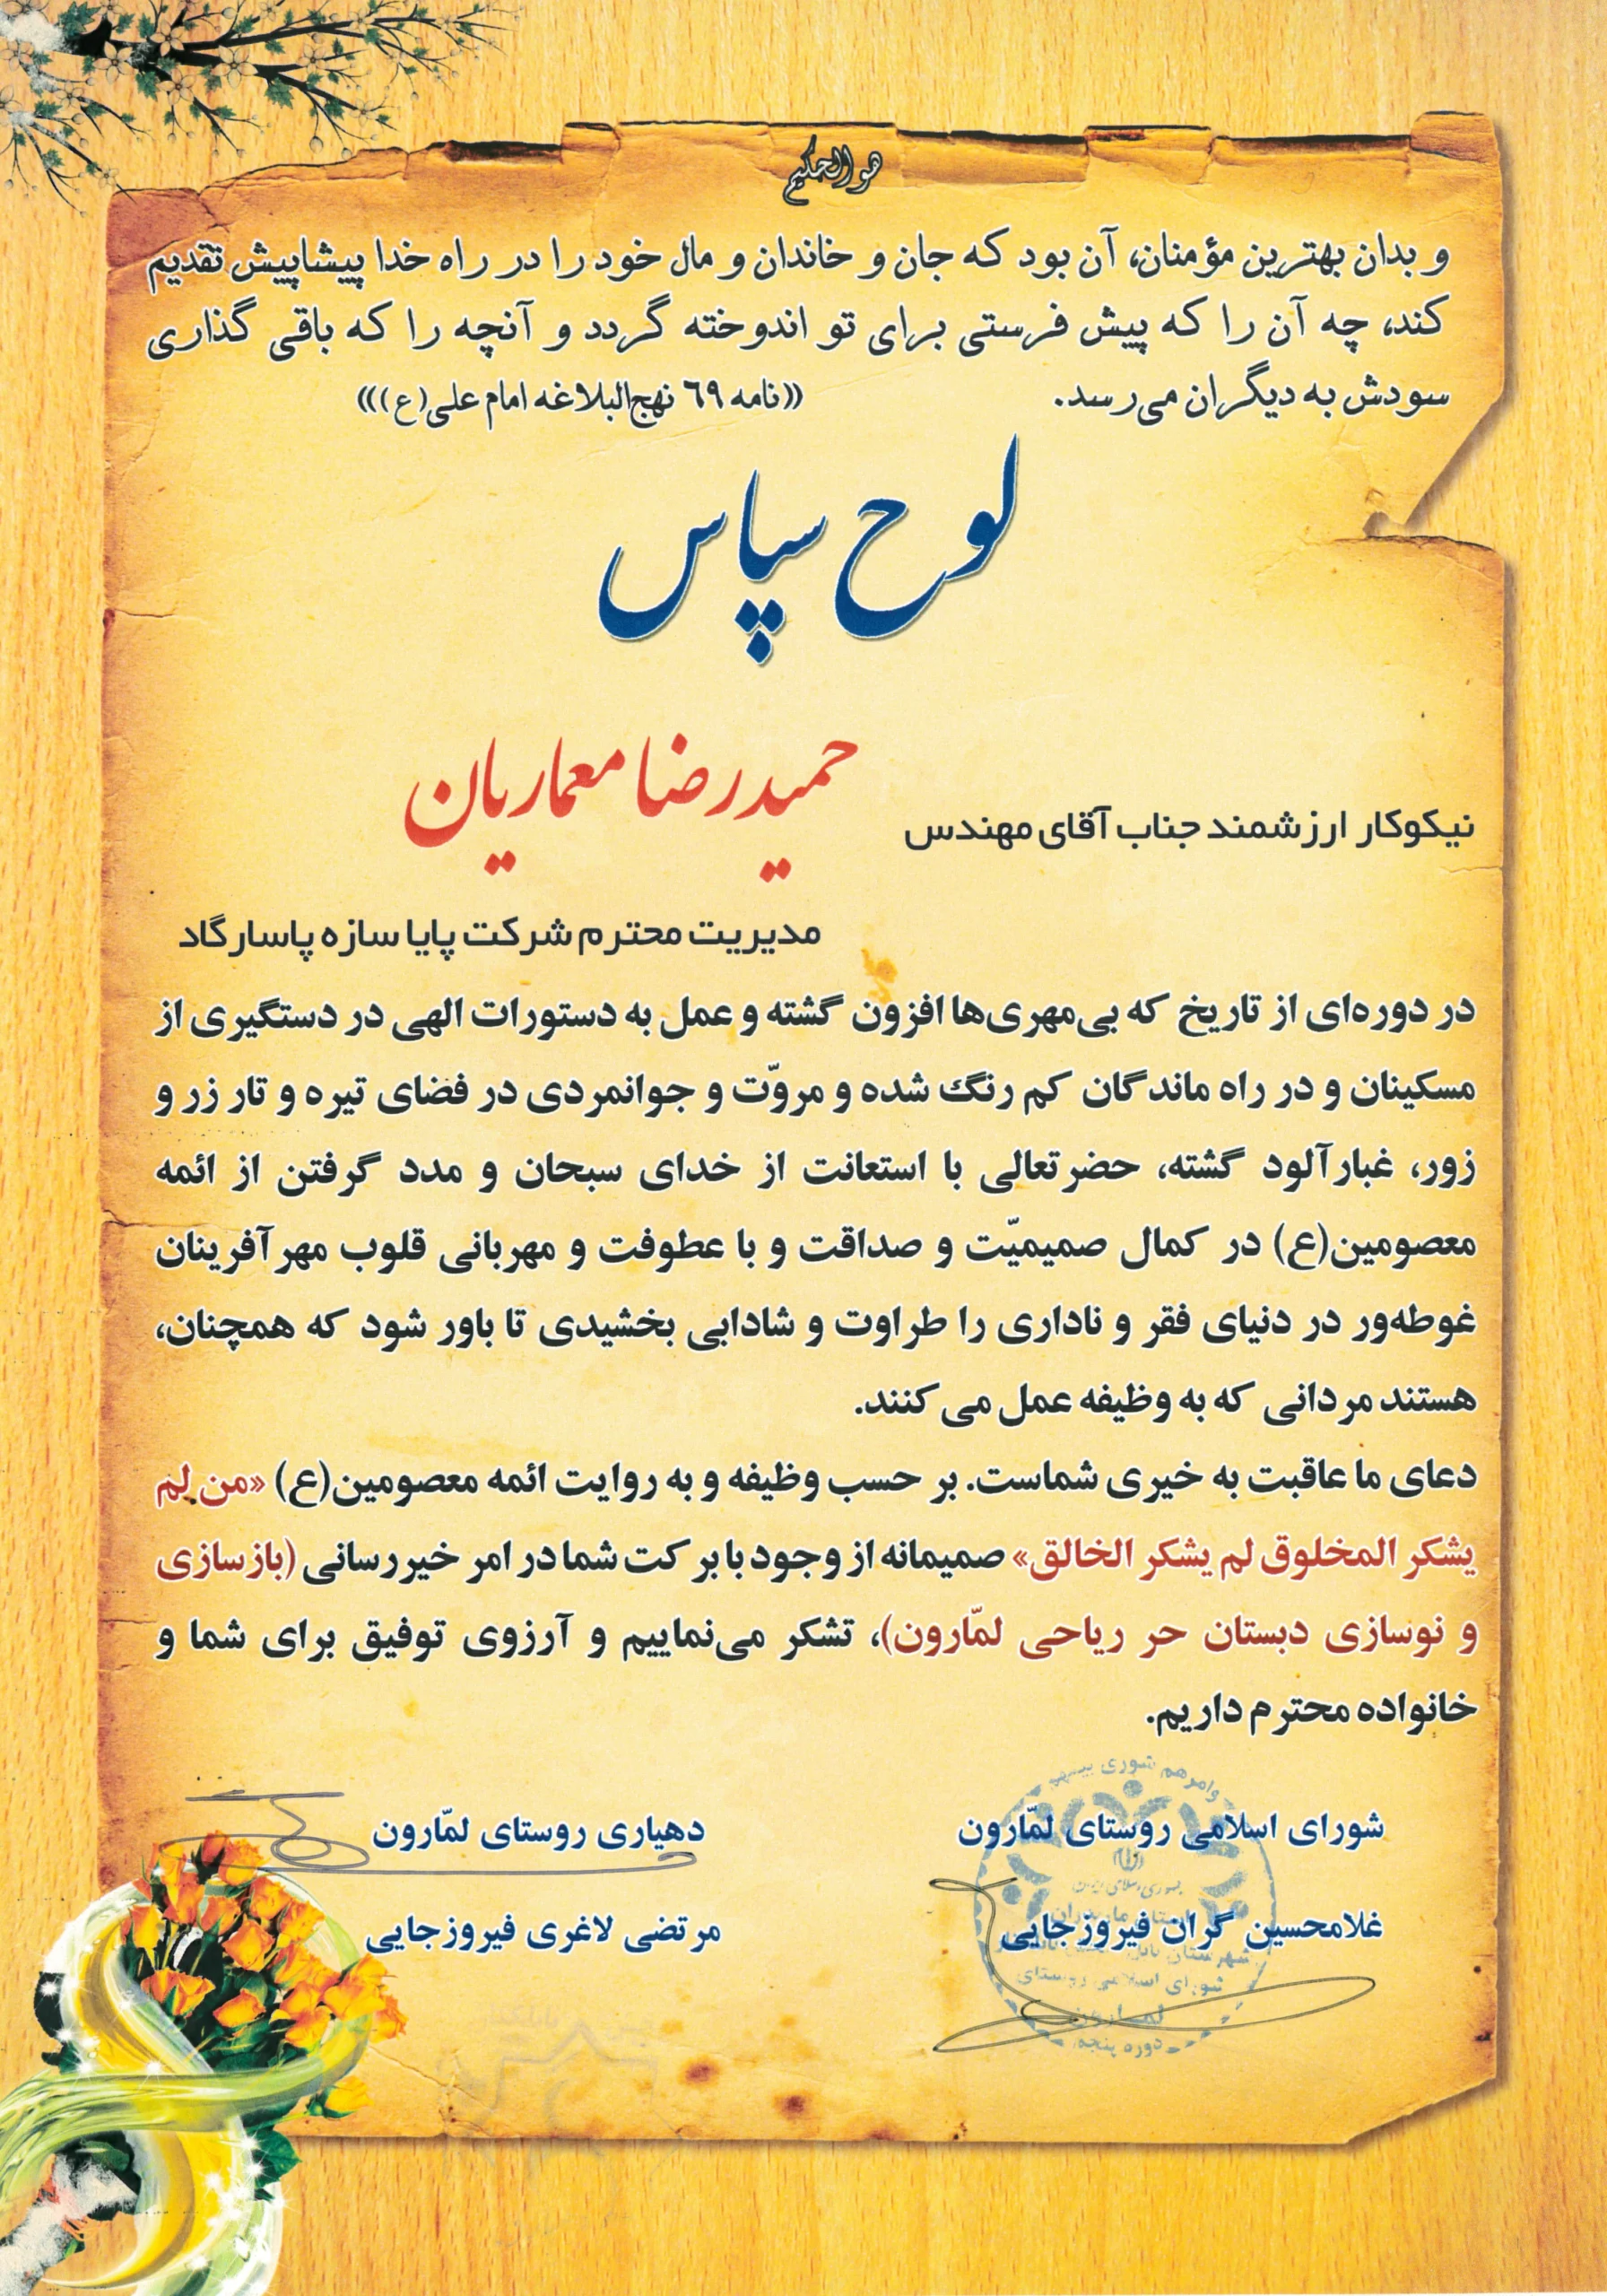 هو الحکیم
و بدان بهترین مؤمنان، آن بود که جان و خاندان و مال خود را در راه خدا پیشاپیش تقدیم
کند، چه آن را که پیش فرستی برای تو اندوخته گردد و آنچه را که باقی گذاری
سودش به دیگران می‌رسد. ((نامه ٦٩ نهج‌البلاغه امام علی(ع)))
لوح سپاس
نیکوکار ارزشمند جناب آقای مهندس حمیدرضا معماریان
مدیریت محترم شرکت پایا سازه پاسارگاد
در دوره‌ای از تاریخ که بی‌مهری‌ها افزون گشته و عمل به دستورات الهی در دستگیری از
مسکینان و در راه ماندگان کم رنگ شده و مروّت و جوانمردی در فضای تیره و تار زر و
زور، غبارآلود گشته، حضرتعالی با استعانت از خدای سبحان و مدد گرفتن از ائمه
معصومین(ع) در کمال صمیمیّت و صداقت و با عطوفت و مهربانی قلوب مهرآفرینان
غوطه‌ور در دنیای فقر و ناداری را طراوت و شادابی بخشیدی تا باور شود که همچنان،
هستند مردانی که به وظیفه عمل می کنند.
دعای ما عاقبت به خیری شماست. بر حسب وظیفه و به روایت ائمه معصومین(ع) «من لم
یشکر المخلوق لم یشکر الخالق» صمیمانه از وجود با برکت شما در امر خیررسانی (بازسازی
و نوسازی دبستان حر ریاحی لمّارون)، تشکر می‌نماییم و آرزوی توفیق برای شما و
خانواده محترم داریم.
شورای اسلامی روستای لمّارون
غلامحسین گران فیروزجایی
دهیاری روستای لمّارون
مرتضی لاغری فیروزجایی
وامرهم شوری بینهم
استان مازندران
شورای اسلامی روستای
لمارون
دوره پنجم